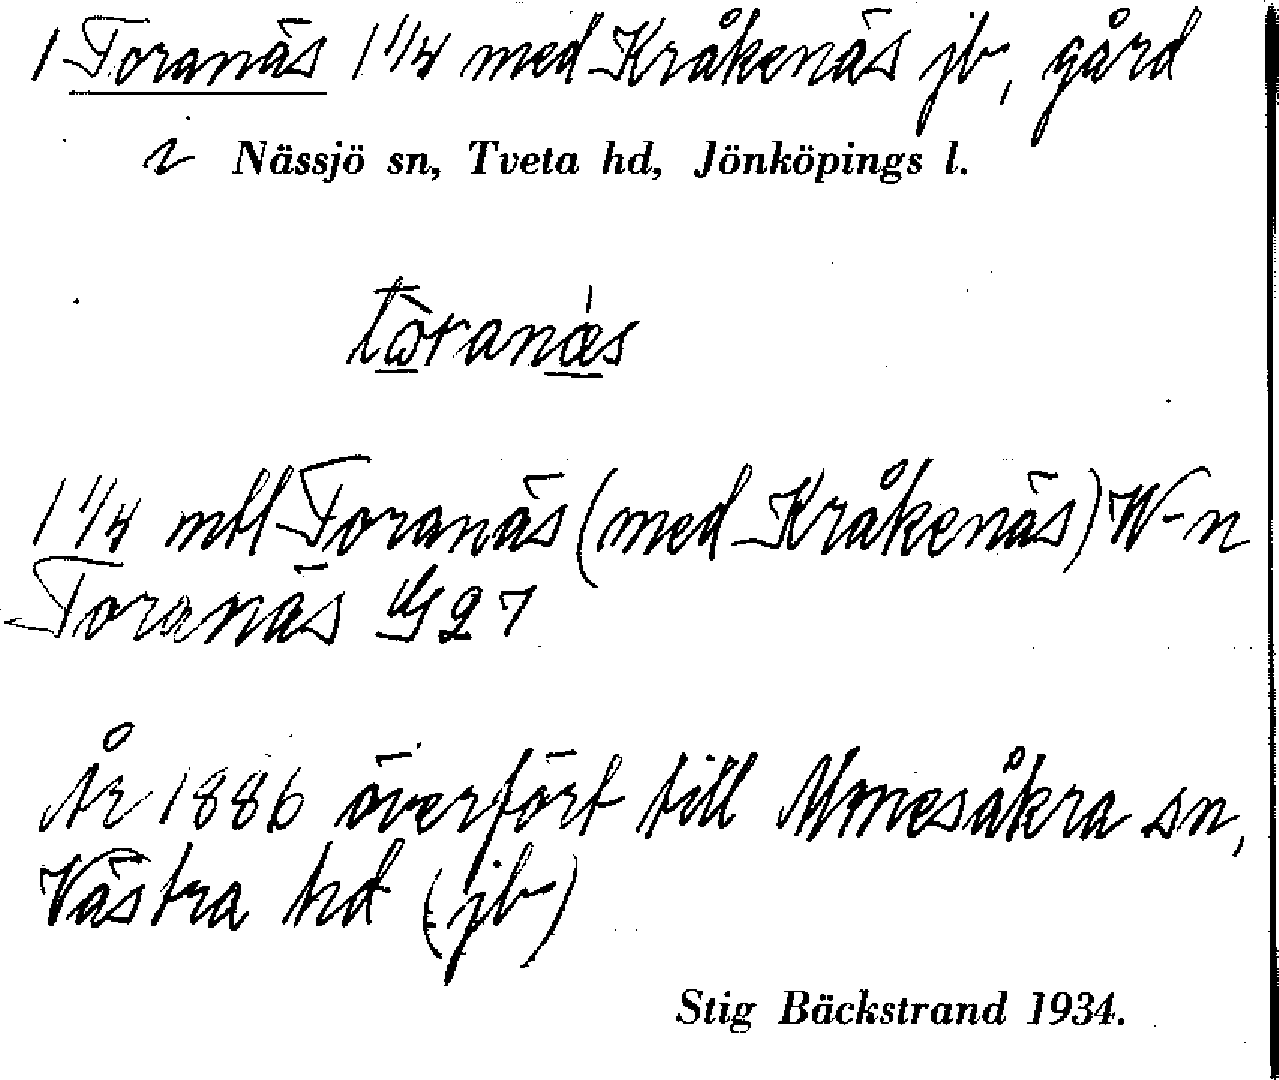 1 Toranäs 1 1/4 med Kråkenäs jb, gård
i Nässjö sn, Tveta hd, Jönköpings l.
tòranæ̀s
1 1/4 mtl Toranäs (med Kråkenäs) W-n
Toranäs G 27
År 1886 överfört till Almesåkra sn,
Västra hd (jb)
Stig Bäckstrand 1934.